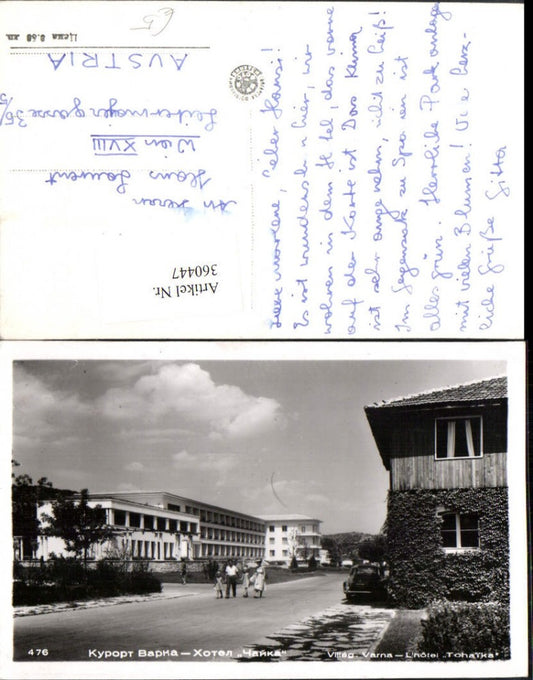 Liebe Marlene, lieber Hansi!
Es ist wunderschön hier, wir
wohnen in dem Hotel, das vorne
auf der Karte ist. Das Klima
ist sehr angenehm, nicht zu heiß!
Im Gegensatz zu Spanien ist
alles grün. Herrliche Park anlagen
mit vielen Blumen! Viele herz-
liche Grüße Gitta
An Herrn
Hans Laurent
Wien XVIII
36/5
AUSTRIA
Цена 0.60 лв.
Artikel Nr.
360447
476 Курорт Варна — Хотел „Чайка“ Villég. Varna — L'hôtel „Tchaïka“